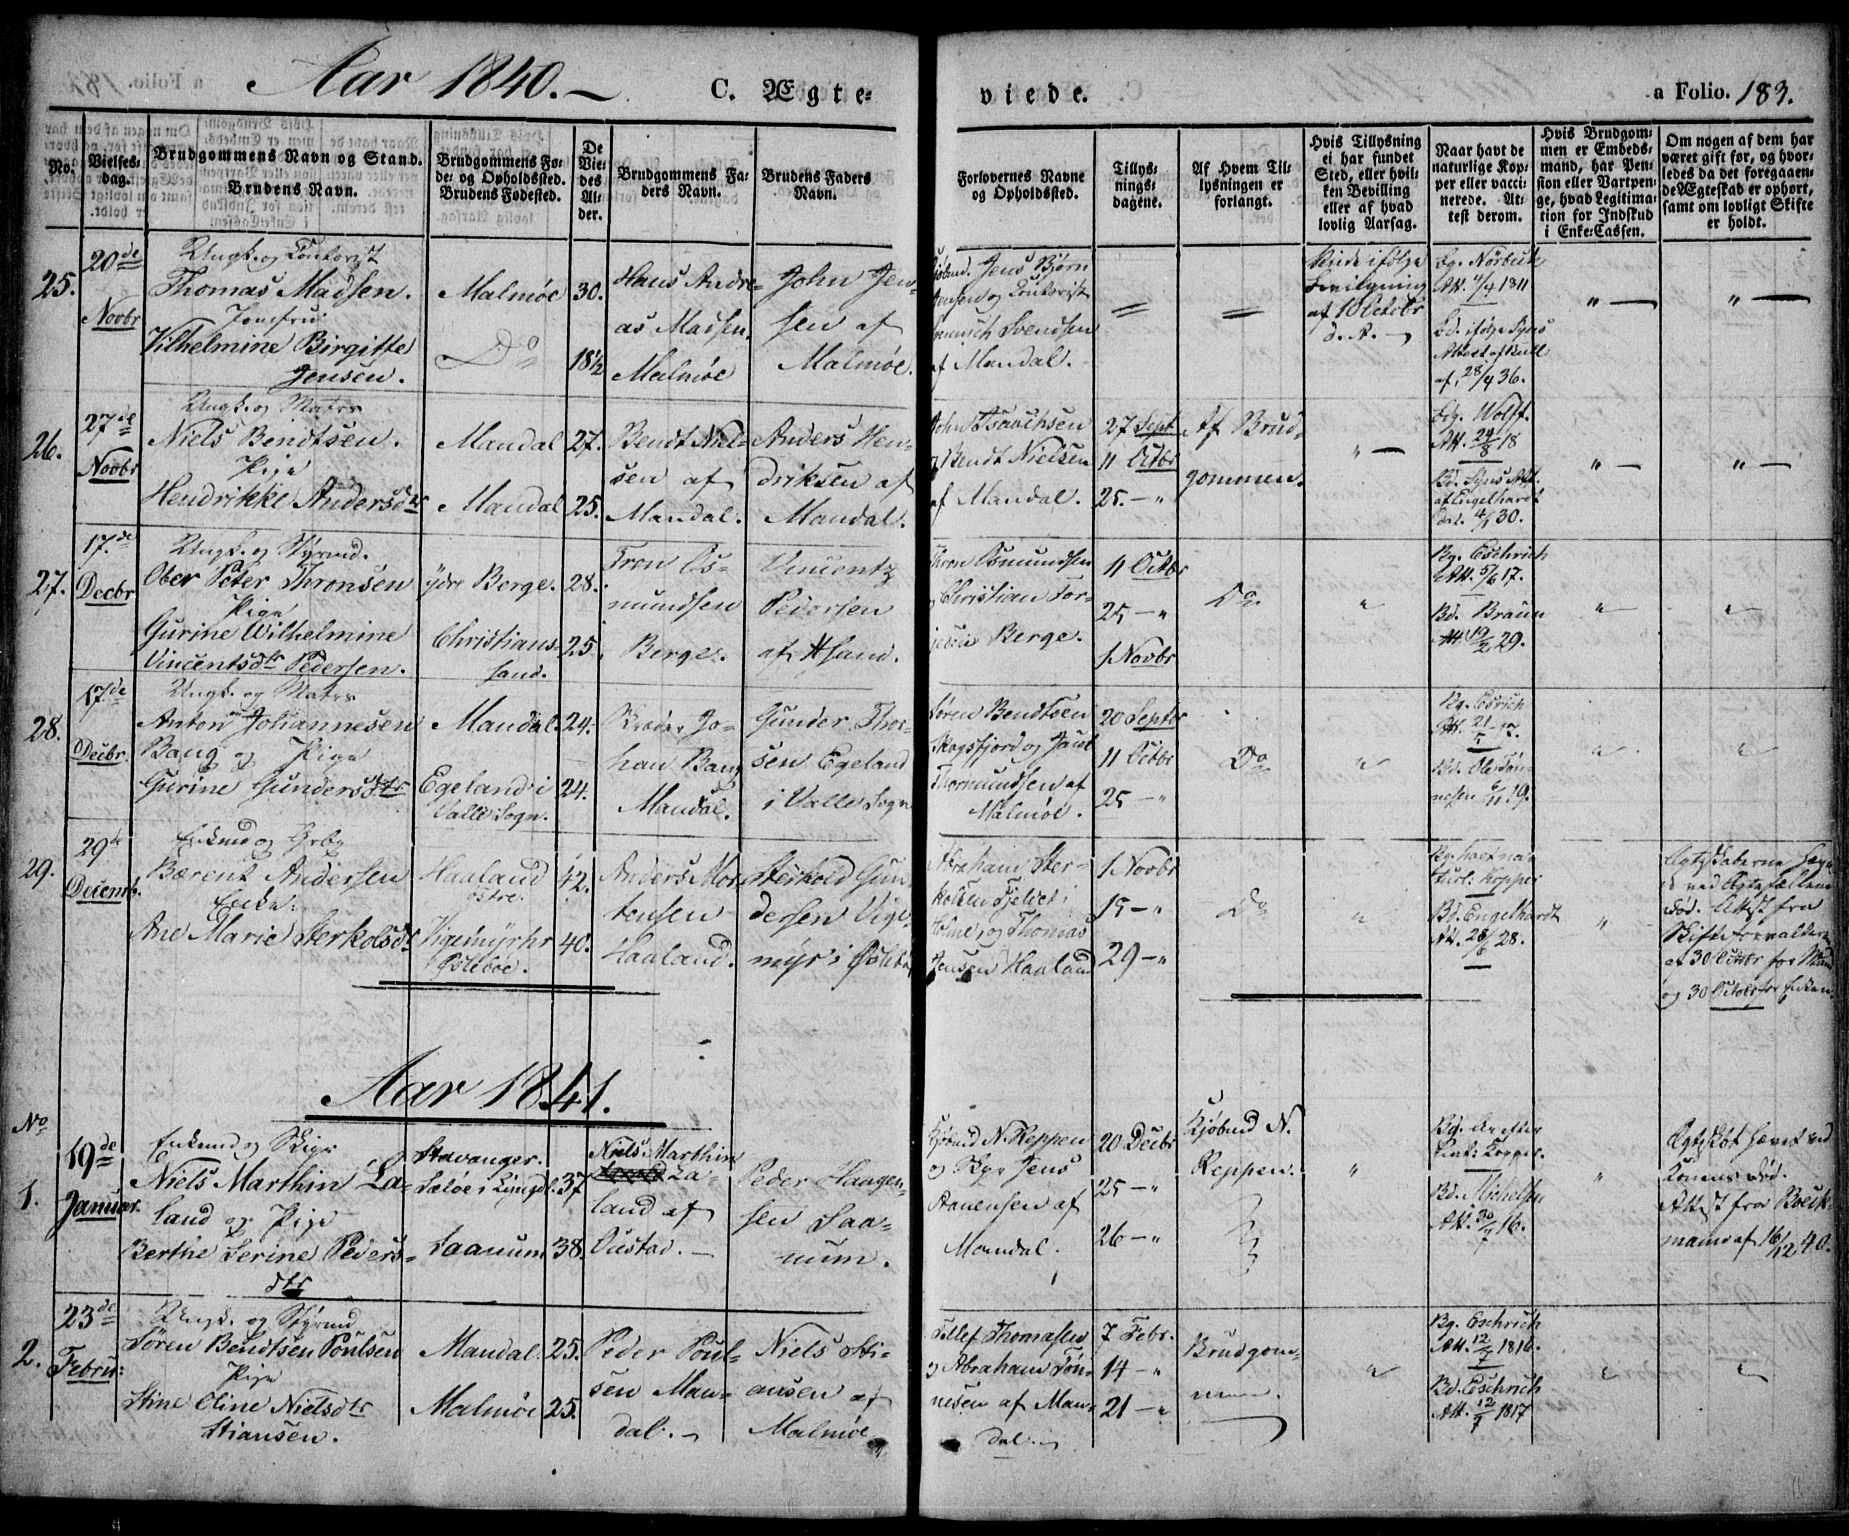 Aar 1840.
C. Ægte-
viede.
a Folio. 183.
No.
Vielses-
dag.
Brudgommens Navn og Stand.
Brudens Navn.
Brudgommens Fø-
de- og Opholdsted.
Brudens Fødested.
De
Vie-
des
Al-
der.
Brudgommens Fa-
ders Navn.
Brudens Faders
Navn.
Forlovernes Navne
og Opholdsted.
Tillys-
nings-
dagene.
Af Hvem Til-
lysningen er
forlangt.
Hvis Tillysning
ei har fundet
Sted, eller hvil-
ken Bevilling
eller af hvad
lovlig Aarsag.
Naar havt de
naturlige Kop-
per eller vacci-
nerede. At-
test derom.
Hvis Brudgom-
men er Embeds-
mand, har Pen-
sion eller Vartpen-
ge, hvad Legitima-
tion for Indskud
i Enke-Cassen.
Om nogen af dem har
været gift før, og hvor-
ledes da det foregaaen-
de Ægteskab er ophørt,
samt om lovligt Skifte
er holdt.
25.
20de
Novbr
Ungk. og Contorist
Thomas Madsen.
Jomfru
Vilhelmine Birgitte
Jensen.
Malmøe
Do
30.
18½
Hans Andre-
as Madsen,
Malmøe
John Jen-
sen af
Malmøe.
Jens Bjørn
Jensen og Contorist
Svendsen
af Mandal.
=
=
Viede ifølge
Bevilgning
af 10 Octobr
d. A.
Bg. Norbuck
Att. 4/4 1811
Bd. ifølge Syns
Attest af Bull
af 28/4 36.
" —
" —
26.
27de
Novbr
Ungk. og Matrs
Niels Bendtsen.
Pige
Hendrikke Andersdtr
Mandal
Mandal
27.
25.
Bendt Niel-
sen af
Mandal.
Anders Hen-
driksen af
Mandal.
John Isaachsen
og Bendt Nielsen
af Mandal.
27 Sept
11 Octbr
25. — "
Af Brud-
gommen.
" —
Bg. Wolff.
Att. 24/8 18
Bd. Syns Att.
af Engelhardt
dat. 4/1 30.
" —
" —
27.
17.de
Decbr
Ungk. og Styrmd.
Ober Peter Thronsen
Pige
Gurine Wilhelmine
Vincentsdtr Pedersen.
ydre Berge.
Christians-
sand.
28.
25.
Tron Os-
mundsen
Berge.
Vincentz
Pedersen
af Xsand.
Thron Osmundsen
og Christian Tor-
jesen Berge.
11 Octbr
25 — "
1 Novbr
Do
"
Bg. Eschrich
Att. 5/6 17.
Bd. Braun
Att 19/2 29.
"
"
28.
17.de
Decbr.
Ungk. og Matrs
Anton Johannesen
Bang og Pige
Gurine Gundersdtr
Mandal.
Egeland i
Valle Sogn.
24.
24.
Jo-
han Bang
Mandal.
Gunder Thor-
sen Egeland
i Valle Sogn
Søren Bendtsen
Skogsfjord og Jacob
Thormundsen af
Malmøe.
20 Septbr
11 Octbr
25 — "
Do
"
Bg. Esrich
Bd. Ole Tøn-
nesen 6/11 19.
"
"
29.
29de
Decemb.
Enkmd og Grbr
Bærent Andersen
Enke.
Ane Marie Sterkolsdt
Haaland
østre.
Vigemyrhr
Øslebøe.
42.
40.
Anders Mor-
tensen
Haaland.
Sterkold Gun-
dersen Vige-
myr i Øslebø
Abraham Ster-
kolsen Fjeldet i
Holme, og Thomas
Jensen Haaland
1 Novbr
15 — "
29 — "
Do
"
Bg. havt na-
turl. Kopper
Bd. Engelhardt
Att. 28/8 28.
"
Ægteskaberne hæve-
de ved Ægtefællens
Død. Attest fra
Skifteforvalteren
af 30 Octbr for Mand
og 30 Octobr for Enken.
Aar 1841.
No
1.
19de
Januar.
Enkemd og Skipr
Niels Marthin La-
land og Pige
Berthe Serine Peders-
dtr
Stavanger.
Sæløe i Lyngdl.
Saanum
37
38.
Niels Marthin
La-
land af
Oustad. —
Peder Haagen-
sen Saa-
num.
Kjøbmd N. Reppen
og Skpr Jens
Aanensen af
Mandal.
20 Decbr
25 — "
26 — "
Kjøbmd N.
Reppen.
"
Bg.
Bd. Michelsen
Att. 30/7 16.
"
Ægteskbt hævet ved
Konens Død.
Attest fra Boeck-
mann af 16/12 40.
2.
23de
Febru:
Ungk. og Styrmd
Søren Bendtsen Poulsen
Pige
Stine Oline Nielsdtr
Stiansen.
Mandal.
Malmøe
25.
25.
Peder Poul-
sen Man-
dal. —
Niels Sti-
ansen af
Malmøe
Tellef Thomasen
og Abraham Tøn-
nesen af Man-
dal. —
7 Febr.
14 — "
21 — "
Brudgom-
men.
"
Bg. Eschrich
Att. 12/7 1816.
Bd. Eschrich
Att. 12/7 1817
"
"